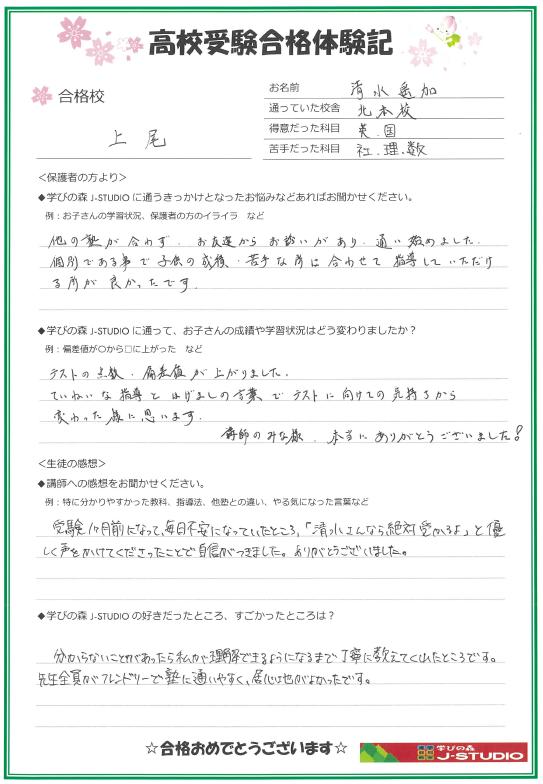 高校受験合格体験記
合格校
上尾
お名前 清水 加
通っていた校舎 北本校
得意だった科目 英.国
苦手だった科目 社.理.数
<保護者の方より>
◆学びの森 J-STUDIO に通うきっかけとなったお悩みなどあればお聞かせください。
例：お子さんの学習状況、保護者の方のイライラ など
他の塾が合わず. お友達からお誘いがあり. 通い始めました.
個別である事で子供の成績・苦手な所に合わせて指導していただけ
る所が良かったです.
◆学びの森 J-STUDIO に通って、お子さんの成績や学習状況はどう変わりましたか？
例：偏差値が○から□に上がった など
テストの点数・偏差値が上がりました.
ていねいな指導とはげましの言葉でテストに向けての気持ちから
変わった様に思います.
講師のみな様. 本当にありがとうございました!
<生徒の感想>
◆講師への感想をお聞かせください。
例：特に分かりやすかった教科、指導法、他塾との違い、やる気になった言葉など
受験1ヶ月前になって、毎日不安になっていたところ、「清水さんなら絶対受かるよ」と優
しく声をかけてくださったことで自信がつきました。ありがとうございました。
◆学びの森 J-STUDIO の好きだったところ、すごかったところは？
分からないことがあったら私が理解できるようになるまで丁寧に教えてくれたところです。
先生全員がフレンドリーで塾に通いやすく、居心地がよかったです。
☆合格おめでとうございます☆
学びの森
J-STUDIO